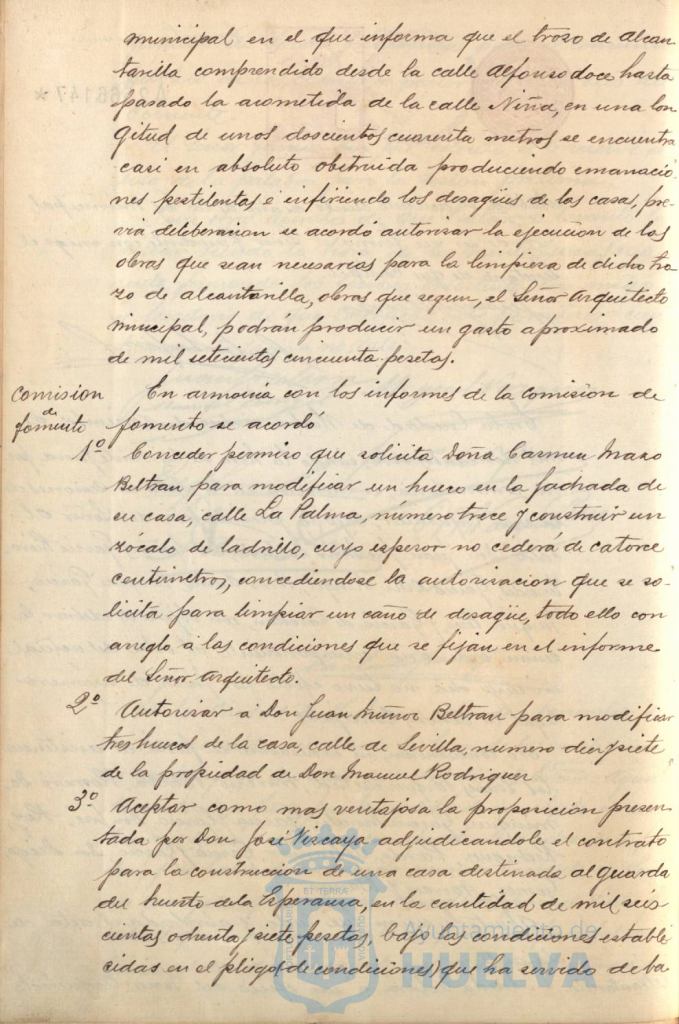 municipal en el que informa que el trozo de alcan-
tarilla comprendido desde la calle Alfonso doce hasta
pasado la acometida de la calle Niña, en una lon
gitud de unos doscientos cuarenta metros se encuentra
casi en absoluto obstruida produciendo emanacio-
nes pestilentas é infiriendo los desagües de las casas, pre-
via deliberacion se acordó autorizar la ejecución de las
obras que sean necesarias para la limpieza de dicho tro-
zo de alcantarilla, obras que segun, el Señor Arquitecto
municipal, podrán producir un gasto aproximado
de mil setecientas cincuenta pesetas.
Comision de fomento
En armonia con los informes de la comision de
fomento se acordó
1º Conceder permiso que solicita Doña Carmen Mazo
Beltran para modificar un hueco en la fachada de
su casa, calle La Palma, número trece y construir un
zócalo de ladrillo, cuyo espesor no cederá de catorce
centimetros, concediendose la autorizacion que se so-
licita para limpiar un caño de desagüe, todo ello con
arreglo á las condiciones que se fijan en el informe
del Señor Arquitecto.
2º Autorizar á Don Juan Muñoz Beltran para modificar
tres huecos de la casa, calle de Sevilla, numero diez y siete
de la propiedad de Don Manuel Rodriguez
3º Aceptar como mas ventajosa la proposicion presen-
tada por Don José Vizcaya adjudicandole el contrato
para la construccion de una casa destinada al guarda
del huerto de la Esperanza, en la cantidad de mil seis
cientas ochenta y siete pesetas, bajo las condiciones estable
cidas en el pliego (de condiciones) que ha servido de ba
Ayuntamiento de
HUELVA